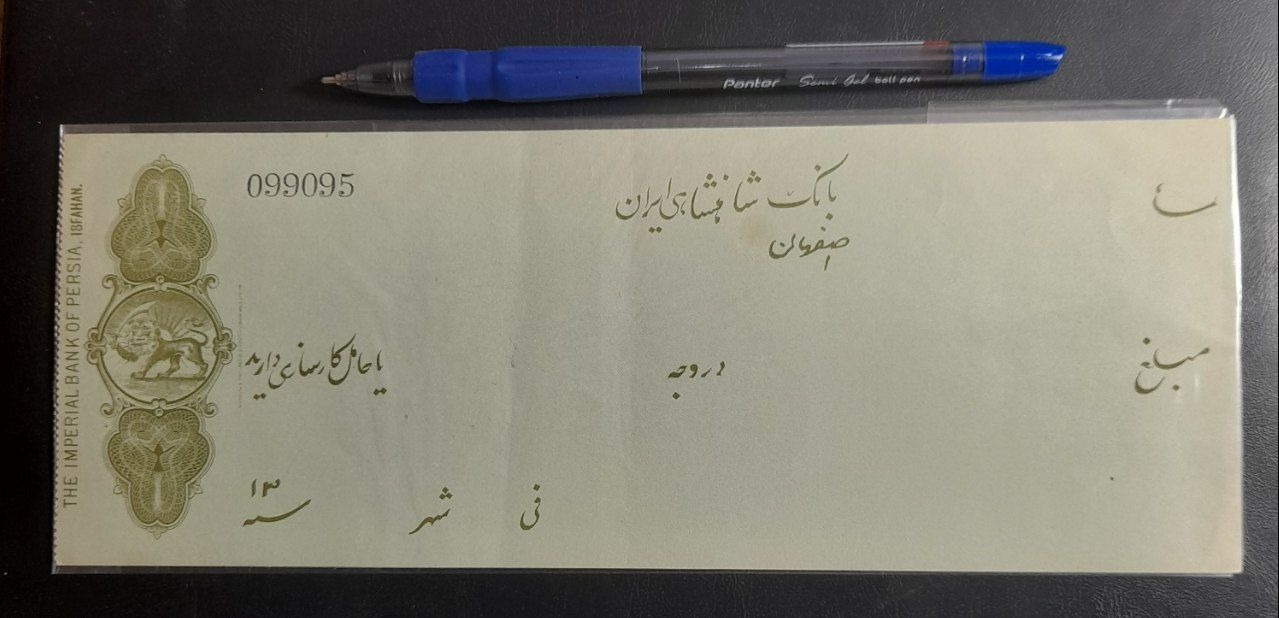 Pentor Semi Gel ball pen
THE IMPERIAL BANK OF PERSIA, ISFAHAN.
099095
بانک شاهنشاهی ایران
اصفهان
مبلغ
در وجه
یا حامل کارسازی دارید
فی شهر سنه ۱۳